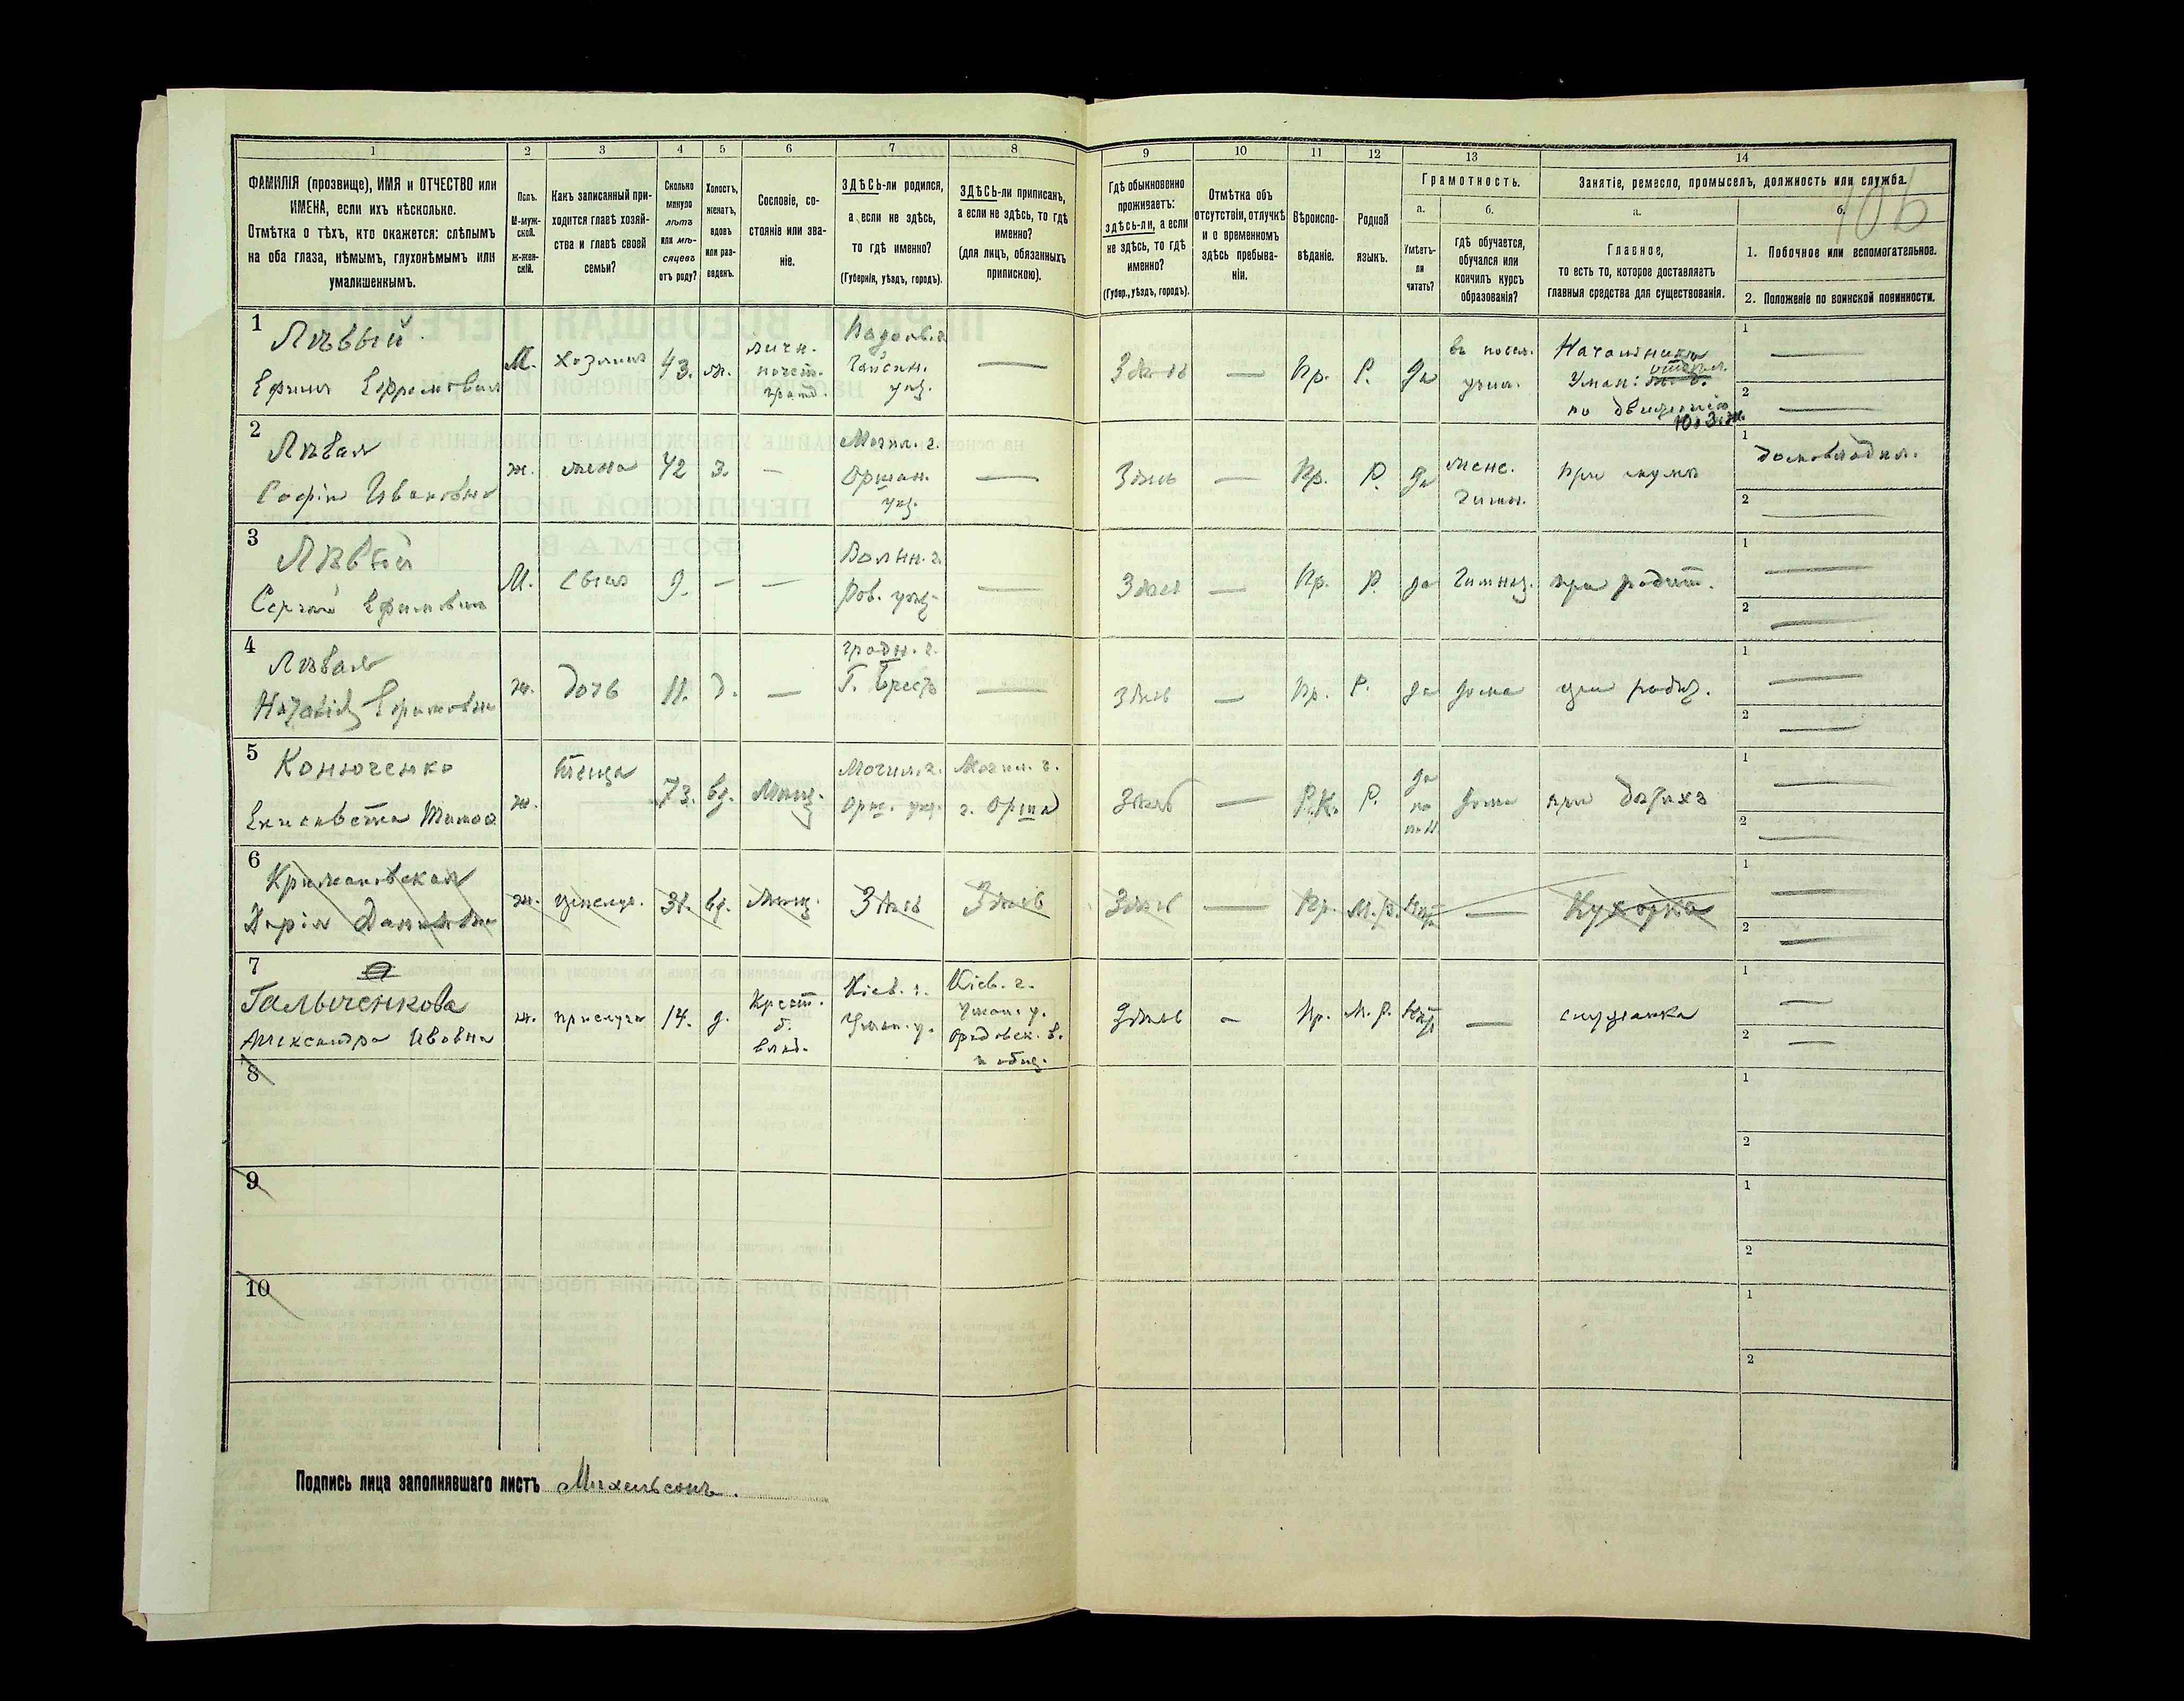 1 2 3 4 5 6 7 8 9 10 11 12 13 14
106
ФАМИЛІЯ (прозвище), ИМЯ и ОТЧЕСТВО или
ИМЕНА, если ихъ нѣсколько.
Отмѣтка о тѣхъ, кто окажется: слѣпымъ
на оба глаза, нѣмымъ, глухонѣмымъ или
умалишеннымъ.
Полъ.
М-муж-
ской.
Ж-жен-
скій.
Какъ записанный при-
ходится главѣ хозяй-
ства и главѣ своей
семьи?
Сколько
минуло
лѣтъ
или мѣ-
сяцевъ
отъ роду?
Холостъ,
женатъ,
вдовъ
или раз-
веденъ.
Сословіе, со-
стояніе или зва-
ніе.
ЗДѢСЬ-ли родился,
а если не здѣсь,
то гдѣ именно?
(Губернія, уѣздъ, городъ).
ЗДѢСЬ-ли приписанъ,
а если не здѣсь, то гдѣ
именно?
(для лицъ, обязанныхъ
припискою).
Гдѣ обыкновенно
проживаетъ:
здѣсь-ли, а если
не здѣсь, то гдѣ
именно?
(Губер., уѣздъ, городъ).
Отмѣтка объ
отсутствіи, отлучкѣ
и о временномъ
здѣсь пребыва-
ніи.
Вѣроиспо-
вѣданіе.
Родной
языкъ.
Грамотность.
а.
Умѣетъ-
ли
читать?
б.
гдѣ обучается,
обучался или
кончилъ курсъ
образованія?
Занятіе, ремесло, промыселъ, должность или служба.
а.
Главное,
то есть то, которое доставляетъ
главныя средства для существованія.
б.
1. Побочное или вспомогательное.
2. Положеніе по воинской повинности.
1
Лѣвый
Ефимъ Ефремовичъ
М. хозяинъ 43. ж.
личн.
почет.
гражд.
Подол. г.
Гайсин.
уѣз.
—
Здѣсь — Пр. Р. Да
учил.
Начальникъ
Уман:
по движенію
Ю. З. ж.
1 —
2 —
2
Лѣвая
Софія Ивановна
ж. жена 42 З. —
Могил. г.
Оршан.
уѣз.
—
Здѣсь — Пр. Р. Да
женс.
гимн.
при мужѣ
1 домовладѣл.
2 —
3
Лѣвый
Сергѣй Ефимовичъ
М. Сынъ 9. — —
Волын. г.
Ров. уѣз.
—
Здѣсь — Пр. Р. да Гимназ. при родит.
1 —
2 —
4
Лѣвая
Наталія Ефимовна
ж. дочь 11. д. —
Гродн. г.
Г. Брестъ
—
здѣсь — Пр. Р. да дома при родит.
1 —
2 —
5
Конюченко
Елисавета
ж. теща 73. вд. Мѣщ.
Могил. г.
Орш. уѣз.
Могил. г.
г. Орша
Здѣсь — Р.К. Р.
да
по
дома при дѣтяхъ
1 —
2 —
6
Дарія Даниловна
ж. прислуг. 31. вд. Мѣщ. Здѣсь Здѣсь
Здѣсь — Пр. М.Р. нѣтъ — Кухарка
1 —
2 —
7
Гальченкова
Александра Ивовна
ж. прислуга 14. д.
Крест.
б.
влад.
Кіев. г.
Уман. у.
Кіев. г.
Уман. у.
и общ.
Здѣсь — Пр. М. Р. нѣтъ — служанка
1 —
2 —
8
1
2
9
1
2
10
1
2
Подпись лица заполнявшаго листъ Михельсонъ.